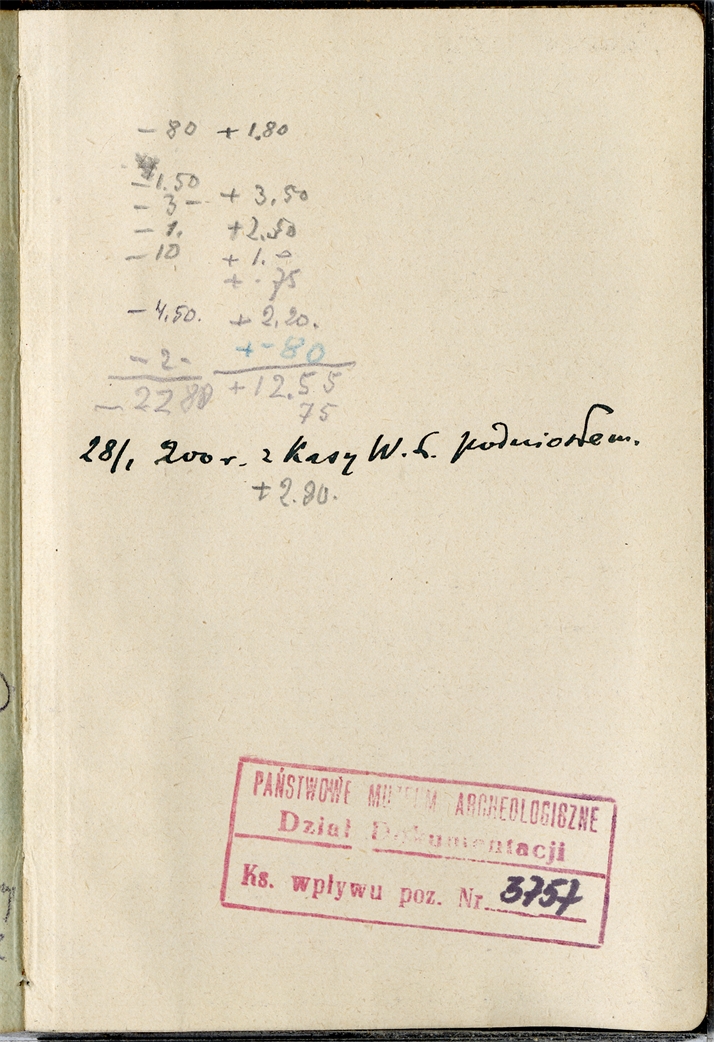 - 80 + 1.80
- 1.50
- 3 - + 3.50
- 1. + 2.50
- 10 + 1. -
+ - 75
- 4.50. + 2.20.
- 2 - + - 80
- 22 80 + 12.55
75
28/1 200 r. z Kasy W. S. podniosłem.
+ 2.80.
PAŃSTWOWE MUZEUM ARCHEOLOGICZNE
Dział Dokumentacji
Ks. wpływu poz. Nr. 3757